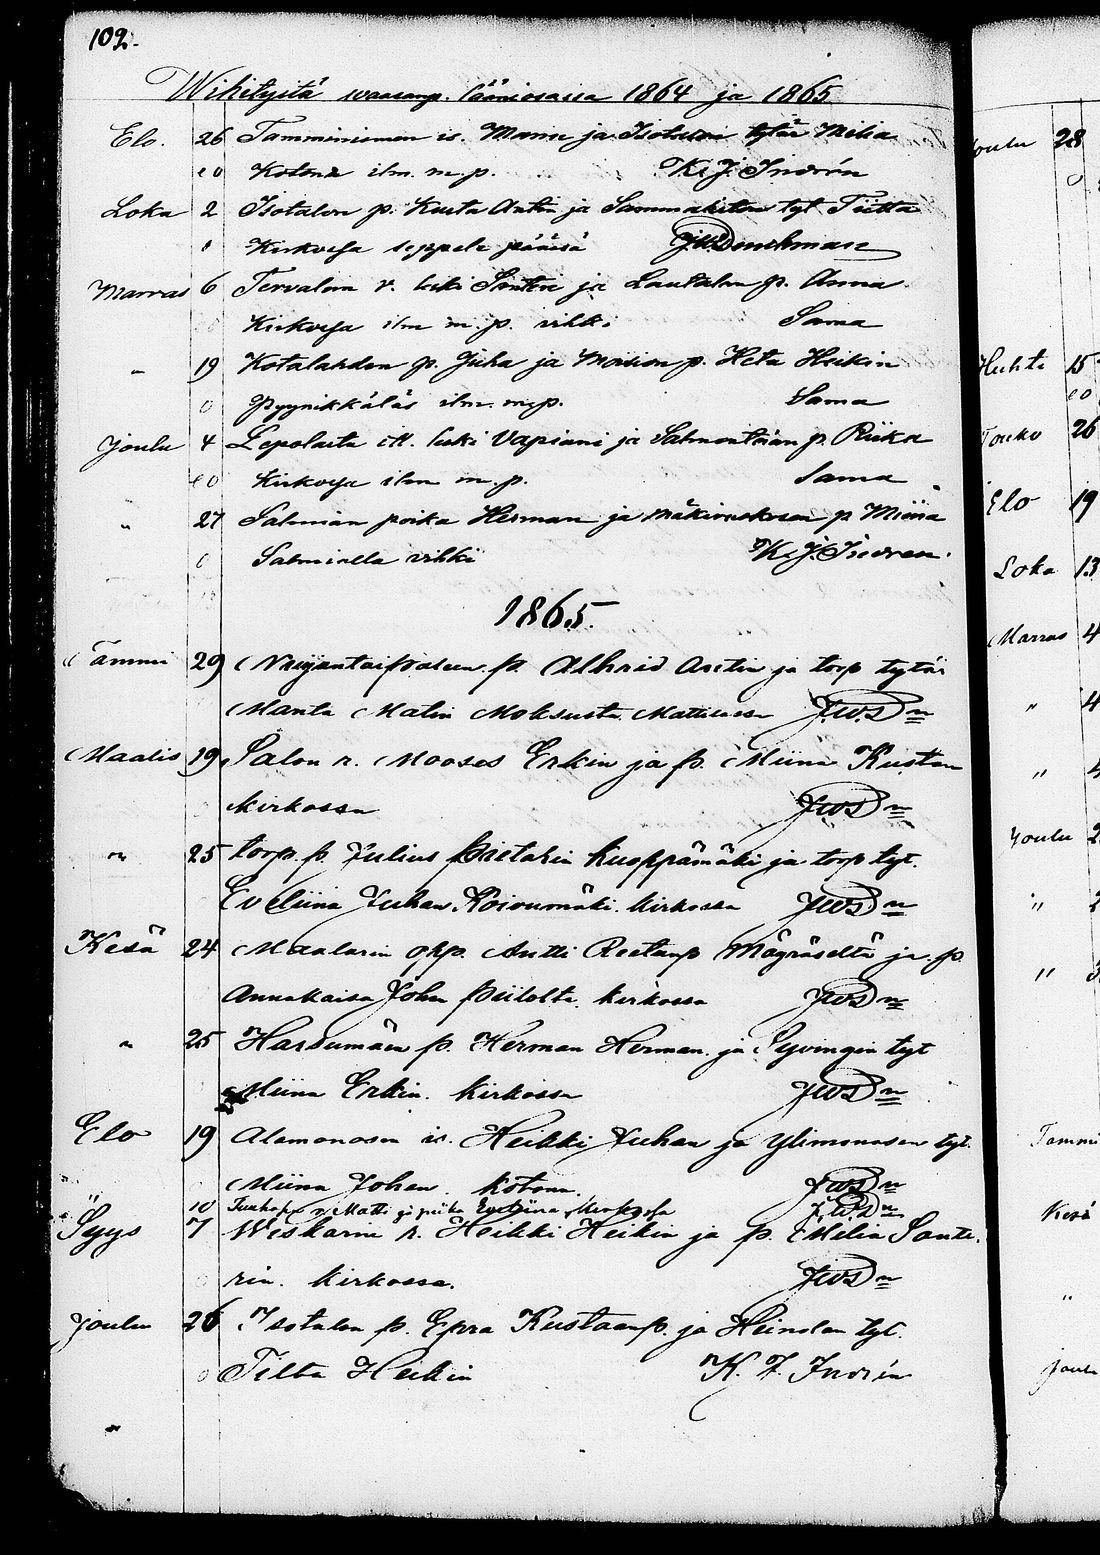 102.
Wihityitä waasanp. lääniosassa 1864 ja 1865
Elo. 26 Tamminiemen is. Manu ja Isotalon tytär Milia
Kotona ilm. m.p. K. J. Indrén
Loka 2 Isotalon p. Kusta Antin ja Sammakiton tyt Tiitta
Kirkosa seppele päässä
Marras 6 Tervalan r. leski Santeri ja Lautalan p. Anna
Kirkosa ilm m. p. vihki Sama
" 19 Kotalahden p. Juha ja Moision p. Heta Heikin
Pyynikkäläs ilm. m.p. Sama
Joulu 4 Lepolasta itt. leski Vapriani ja p. Riika
Kirkosa ilm m.p. Sama
" 27 Salmiân poika Herman ja p Miina
Salmialla vihki K. J. Indren.
1865.
Tammi 29 p. Antin ja torp tytär
Manta Matin Moksusta. J.W.S n
Maalis 19 Salon r. Mooses Erkin ja p. Miina Kustan
kirkossa JWS n
" 25 torp. p. Julius Pietarin Kuoppämäki ja torp tyt.
Eveliina Juhan Koivumäki. kirkossa JWS n
Kesä 24 Maalarin opp. Antti Reetanp Mägräseltä ja p.
Annakaisa Johan Piilolta. kirkossa JWS n
" 25 Harsumäen p. Herman Herman. ja Syvingin tyt
Miina Erkin. kirkossa JWS n
Elo 19 Alamonosen is. Heikki Juhan ja Ylimonosen tyt.
Miina Johan kotona. JWS n
10 r. Matti ja Eveliina JWS n
Syys 7 Wiskarin r. Heikki Heikin ja p. Emelia Sante-
rin. kirkossa. JWS n
Joulu 26 Isotalon p. Epra Kustaanp. ja Heinolan tyt.
Tilta Heikin K. J. Indrén
"
Joulu 28
Huhti 15
Touko 26
Elo 19
Loka 13
Marras 4
" 4
" 4
Joulu 2
" 2
" 3
Tammi
Kesä
"
Joulu